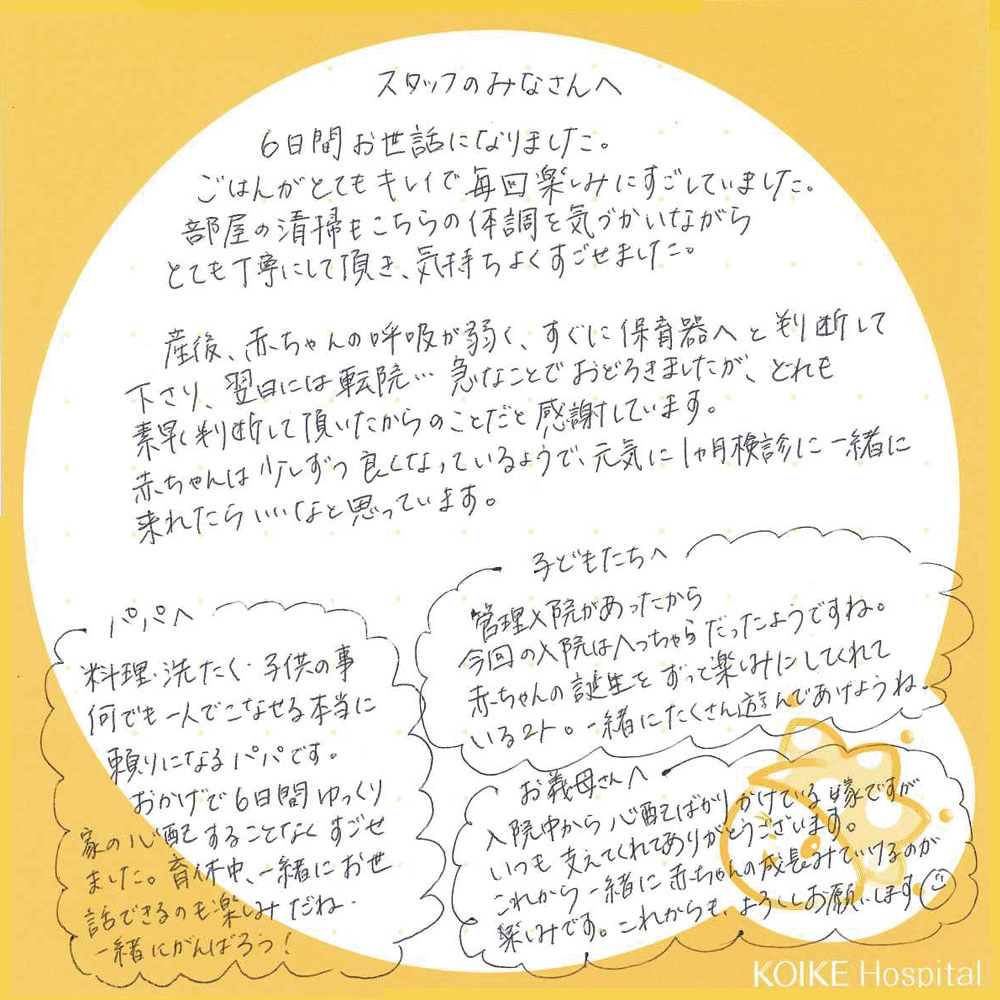 スタッフのみなさんへ
6日間お世話になりました。
ごはんがとてもキレイで毎回楽しみにすごしていました。
部屋の清掃もこちらの体調を気づかいながら
とても丁寧にして頂き、気持ちよくすごせました。
産後、赤ちゃんの呼吸が弱く、すぐに保育器へと判断して
下さり、翌日には転院… 急なことでおどろきましたが、どれも
素早く判断して頂いたからのことだと感謝しています。
赤ちゃんは少しずつ良くなっているようで、元気に1ヵ月検診に一緒に
来れたらいいなと思っています。
子どもたちへ
管理入院があったから
今回の入院はへっちゃらだったようですね。
赤ちゃんの誕生をずっと楽しみにしてくれて
いる2人。一緒にたくさん遊んであげようね。
パパへ
料理・洗たく・子供の事
何でも一人でこなせる本当に
頼りになるパパです。
おかげで6日間ゆっくり
家の心配することなくすごせ
ました。育休中、一緒にお世
話できるのも楽しみだね。
一緒にがんばろう！
お義母さんへ
入院中から心配ばかりかけている嫁ですが
いつも支えてくれてありがとうございます。
これから一緒に赤ちゃんの成長みていけるのが
楽しみです。これからも、よろしくお願いします
KOIKE Hospital